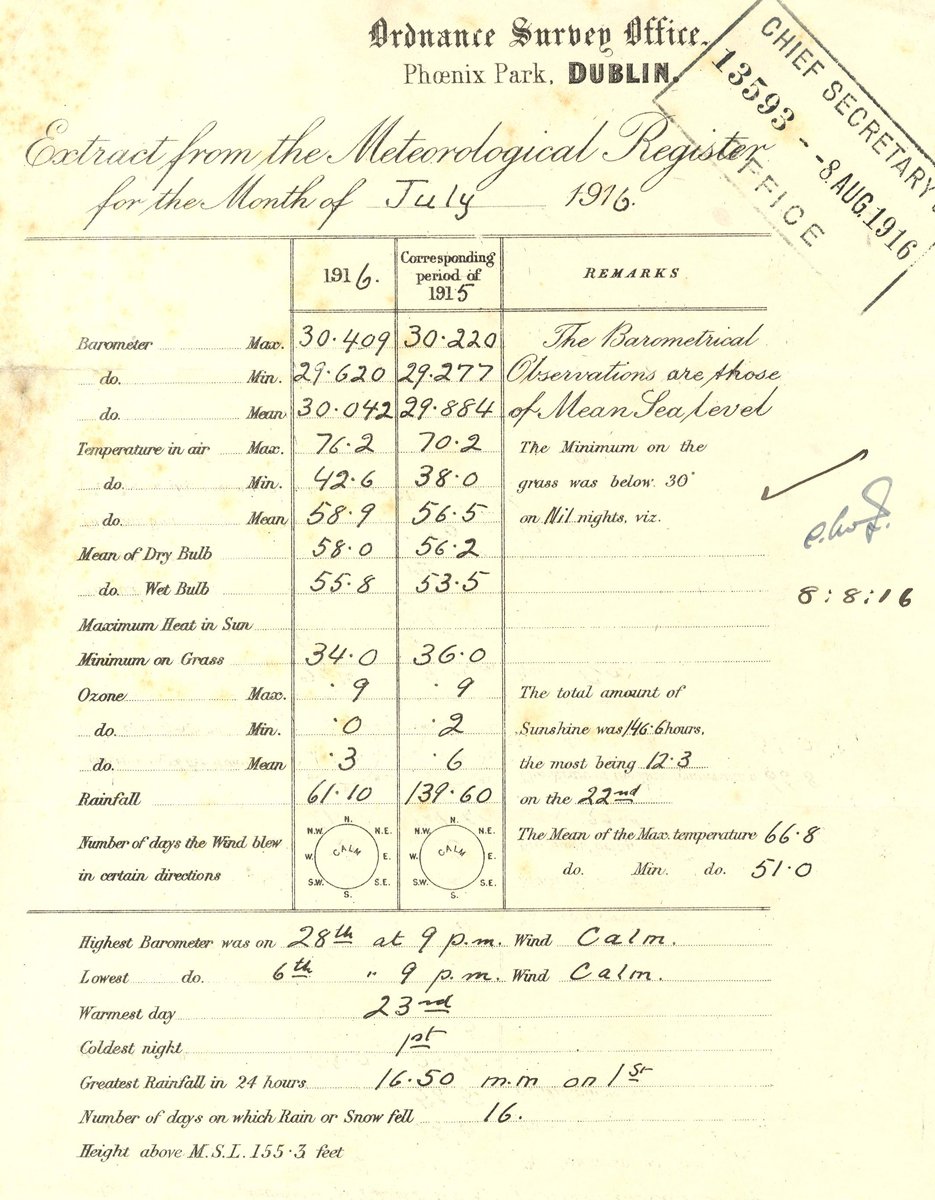 Ordnance Survey Office.
Phœnix Park, DUBLIN.
CHIEF SECRETARY'S
13593 - -8.AUG.1916
OFFICE
Extract from the Meteorological Register
for the Month of July 1916.
1916. Corresponding period of 1915 REMARKS
Barometer Max. 30.409 30.220 The Barometrical
do. Min. 29.620 29.277 Observations are those
do Mean 30.042 29.884 of Mean Sea Level
Temperature in air Max. 76.2 70.2 The Minimum on the
do. Min. 42.6 38.0 grass was below 30°
do. Mean 58.9 56.5 on Nil nights, viz.
Mean of Dry Bulb 58.0 56.2
do. Wet Bulb 55.8 53.5
8:8:16
Maximum Heat in Sun
Minimum on Grass 34.0 36.0
Ozone Max. .9 .9 The total amount of
do. Min. .0 .2 Sunshine was 146.6 hours,
do. Mean .3 6 the most being 12.3
Rainfall 61.10 139.60 on the 22nd
Number of days the Wind blew in certain directions
N. N.E. E. S.E. S. S.W. W. N.W. CALM
N. N.E. E. S.E. S. S.W. W. N.W. CALM
The Mean of the Max. temperature 66.8
do. Min. do. 51.0
Highest Barometer was on 28th at 9 p.m. Wind Calm.
Lowest do. 6th " 9 p.m. Wind Calm.
Warmest day 23rd
Coldest night 1st
Greatest Rainfall in 24 hours 16.50 m.m on 1st
Number of days on which Rain or Snow fell 16.
Height above M.S.L. 155.3 feet